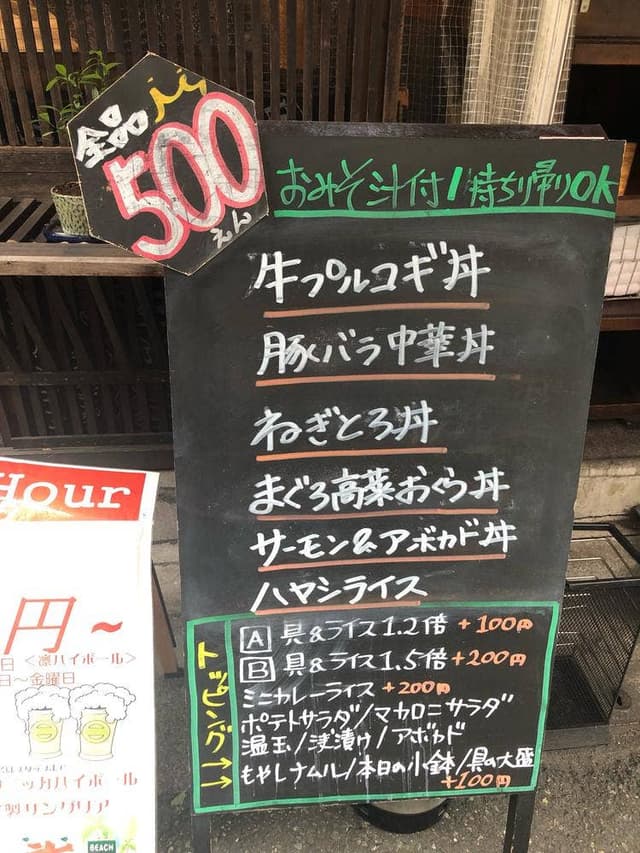 全品
500
えん
おみそ汁付/持ち帰りOK
牛プルコギ丼
豚バラ中華丼
ねぎとろ丼
まぐろ高菜おくら丼
サーモン&アボカド丼
ハヤシライス
トッピング→→
A 具&ライス1.2倍 +100円
B 具&ライス1.5倍 +200円
ミニカレーライス +200円
ポテトサラダ/マカロニサラダ
温玉/浅漬け/アボカド
もやしナムル/本日の小鉢/具の大盛
+100円
Hour
円~
日 <凛ハイボール>
日~金曜日
ハイボール
製サングリア
BEACH